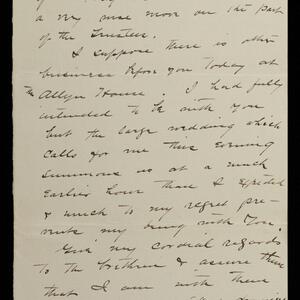 a very wise move on the part
of the Trustees.
I suppose there is other
business before you today at
the Allyn House. I had fully
intended to be with you
but the large wedding which
calls for me this evening
summons us at a much
earlier hour than I expected
& much to my regret pre-
vents my being with you.
Give my cordial regards
to the brethren & assure them
that I am with them